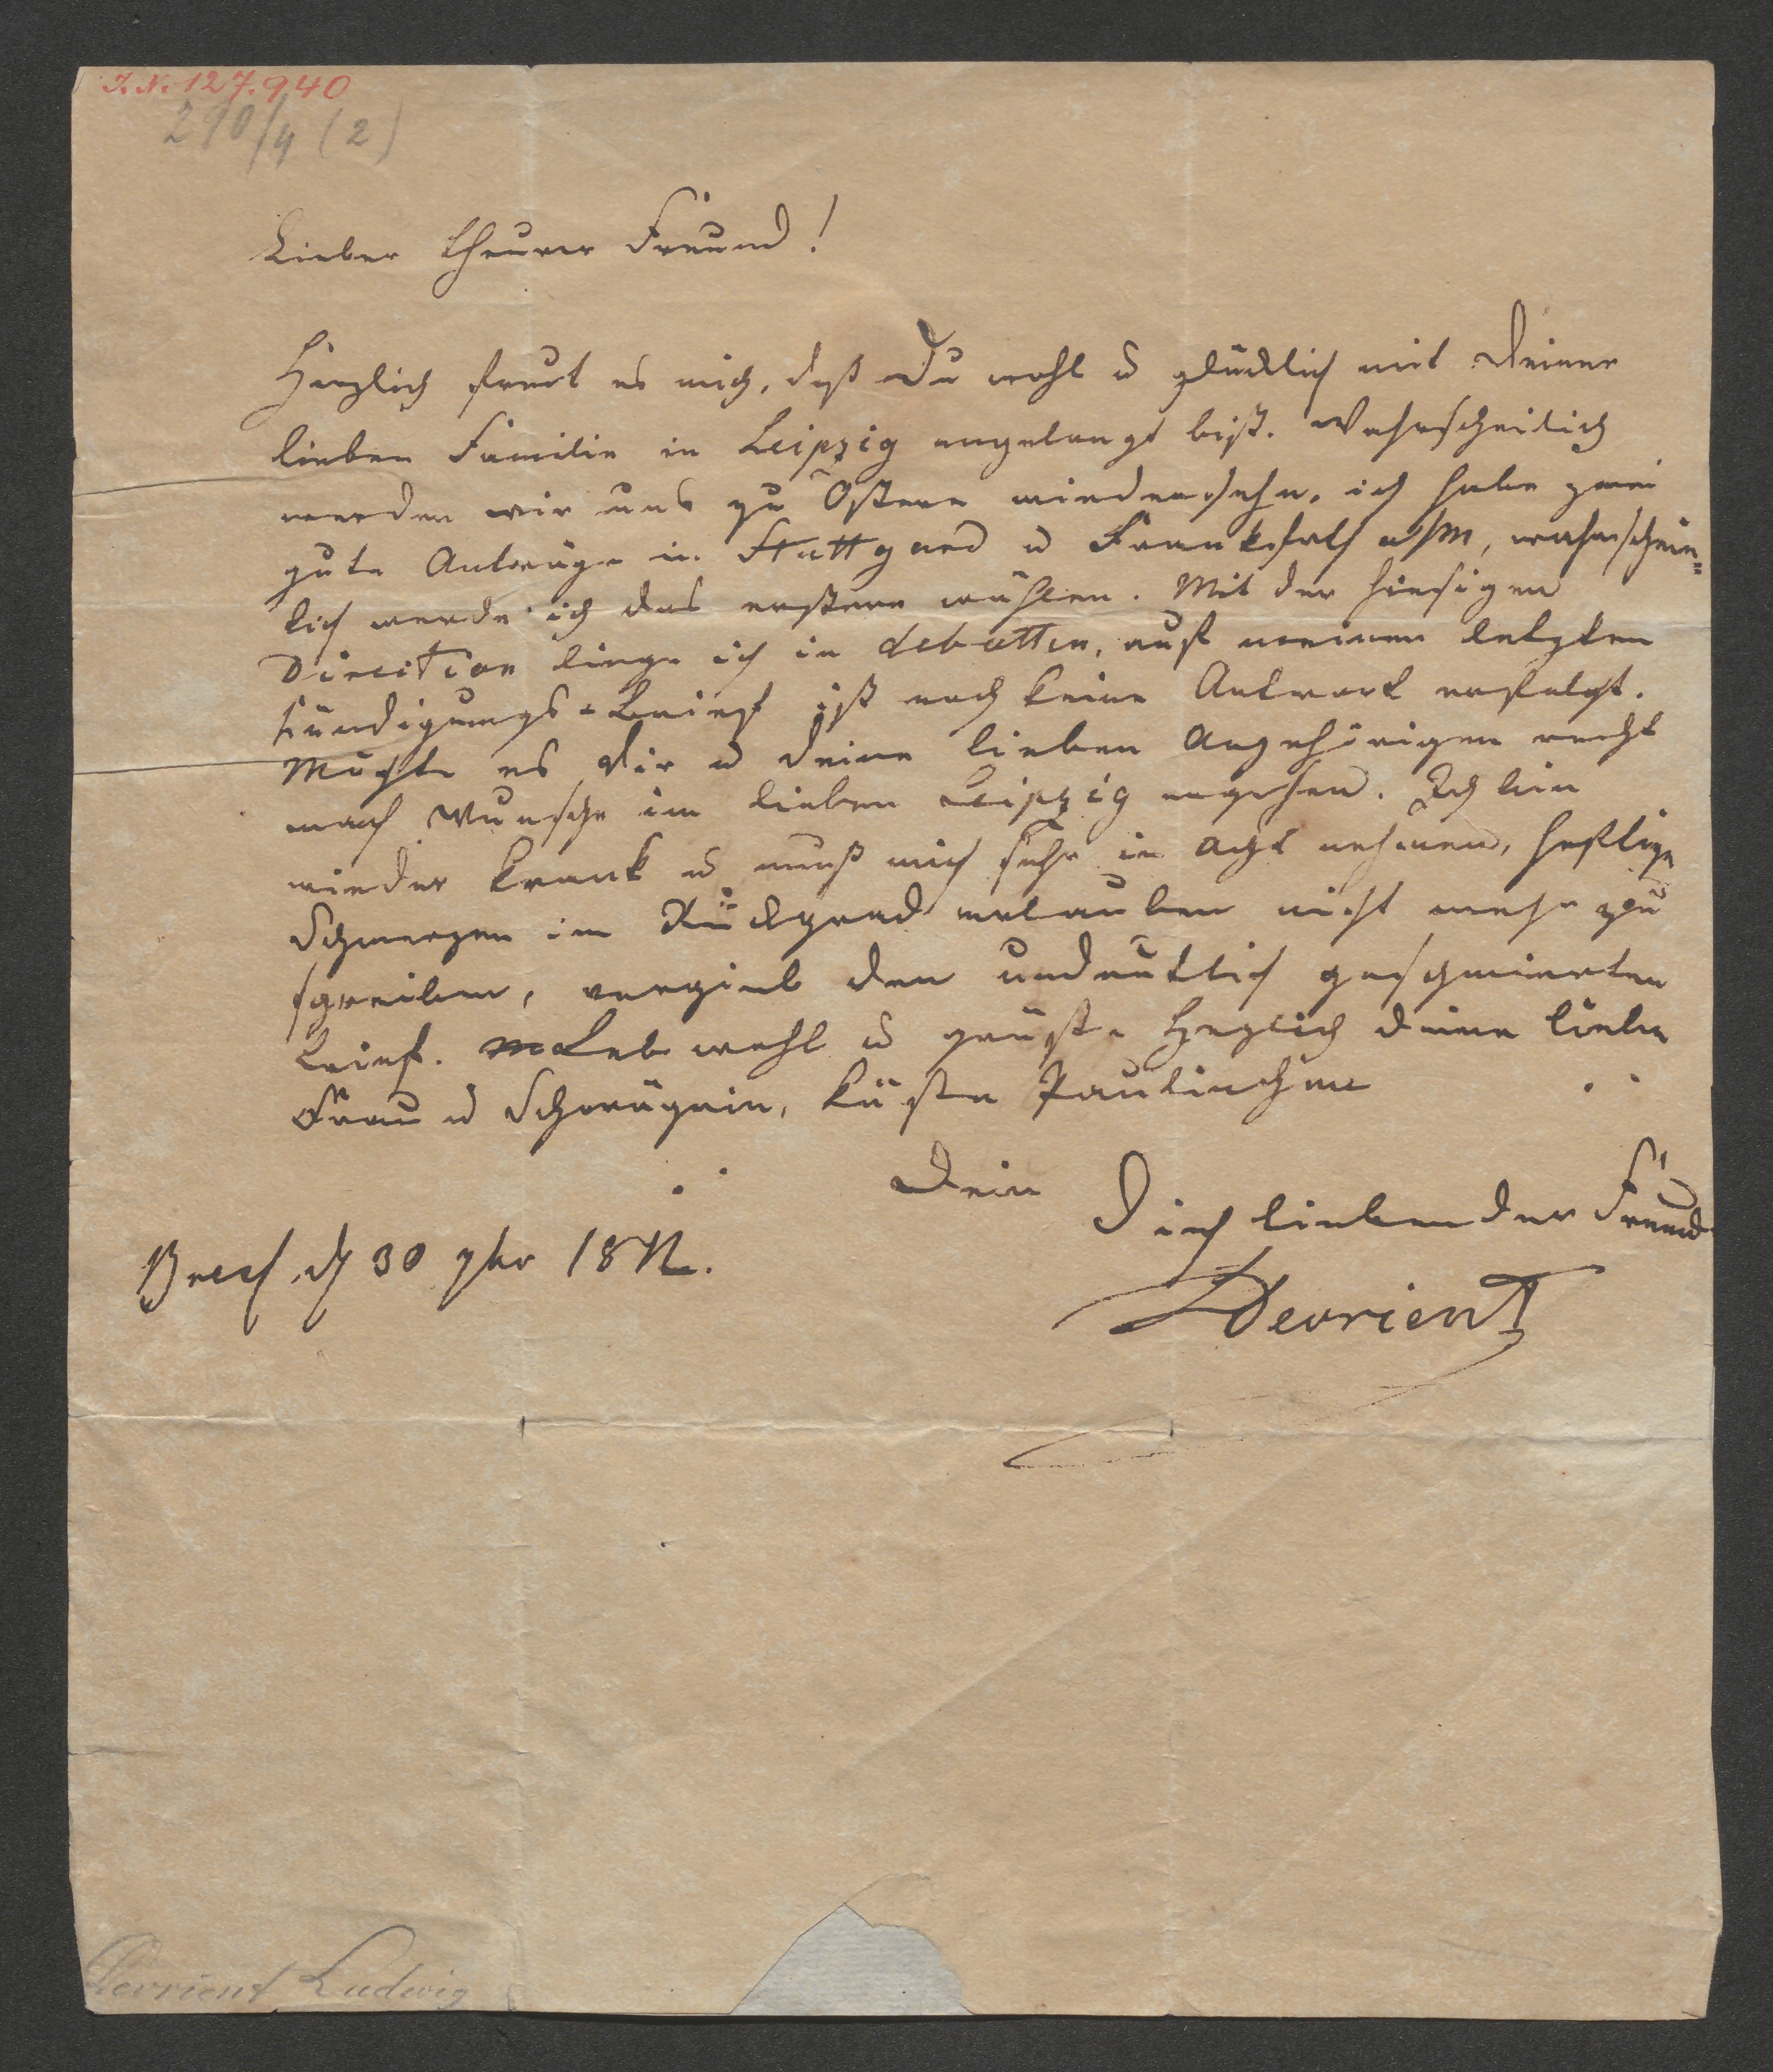 I. N. 127.940
290/4 (2)
Lieber theurer Freund!
Herzlich freut es mich, daß Du wohl u glücklich mit Deiner
lieben Familie in Leipzig angelangt bist. Wahrscheilich
werden wir uns zu Ostern wiedersehn, ich habe zwei
gute Anträge in Stuttgard u Frankfurth a/M, wahrschein=
lich werde ich das erstere wählen. Mit der hiesigen
Direction liege ich in debatten, auf meinen letzten
Kündigungs-Brief ist noch keine Antwort erfolgt.
Möchte es Dir u deine lieben Angehörigen recht
nach Wunsche im lieben Leipzig ergehen. Ich bin
wieder krank u muß mich sehr in Acht nehmen, heftige
Schmerzen im Rückgrad erlauben nicht mehr zu
schreiben, vergieb den undeutlich geschmierten
Brief. Leb wohl u grüße Herzlich deine liebe
Frau u Schwägrin, küsse Paulinchen
Dein
Dich liebender Freund
Bresl. d 30
Devrient
Devrient Ludwig